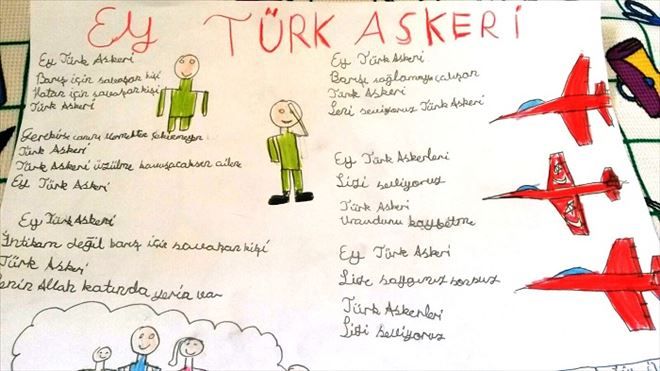 EY TÜRK ASKERİ
Ey Türk Askeri
Barış için savaşan kişi
Vatan için savaşan kişi
Türk Askeri
Gerekirse canını vermekten çekinmeyen
Türk Askeri
Türk Askeri üzülme kavuşacaksın ailene
Ey Türk Askeri
Ey Türk Askeri
İntikam değil barış için savaşan kişi
Türk Askeri
Senin Allah katında yerin var
Ey Türk Askeri
Barışı sağlamaya çalışan
Türk Askeri
Seni seviyoruz Türk Askeri
Ey Türk Askerleri
Sizi seviyoruz
Türk Askeri
Umudunu kaybetme
Ey Türk Askeri
Size saygımız sonsuz
Türk Askerleri
Sizi seviyoruz